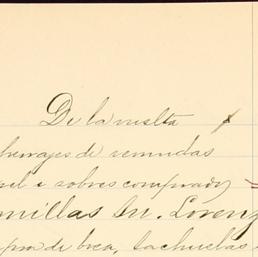 De la vuelta $
herrajes de remudas
pel e sobres comprado
millas M. Lorenz
pra de brea, tachuelas